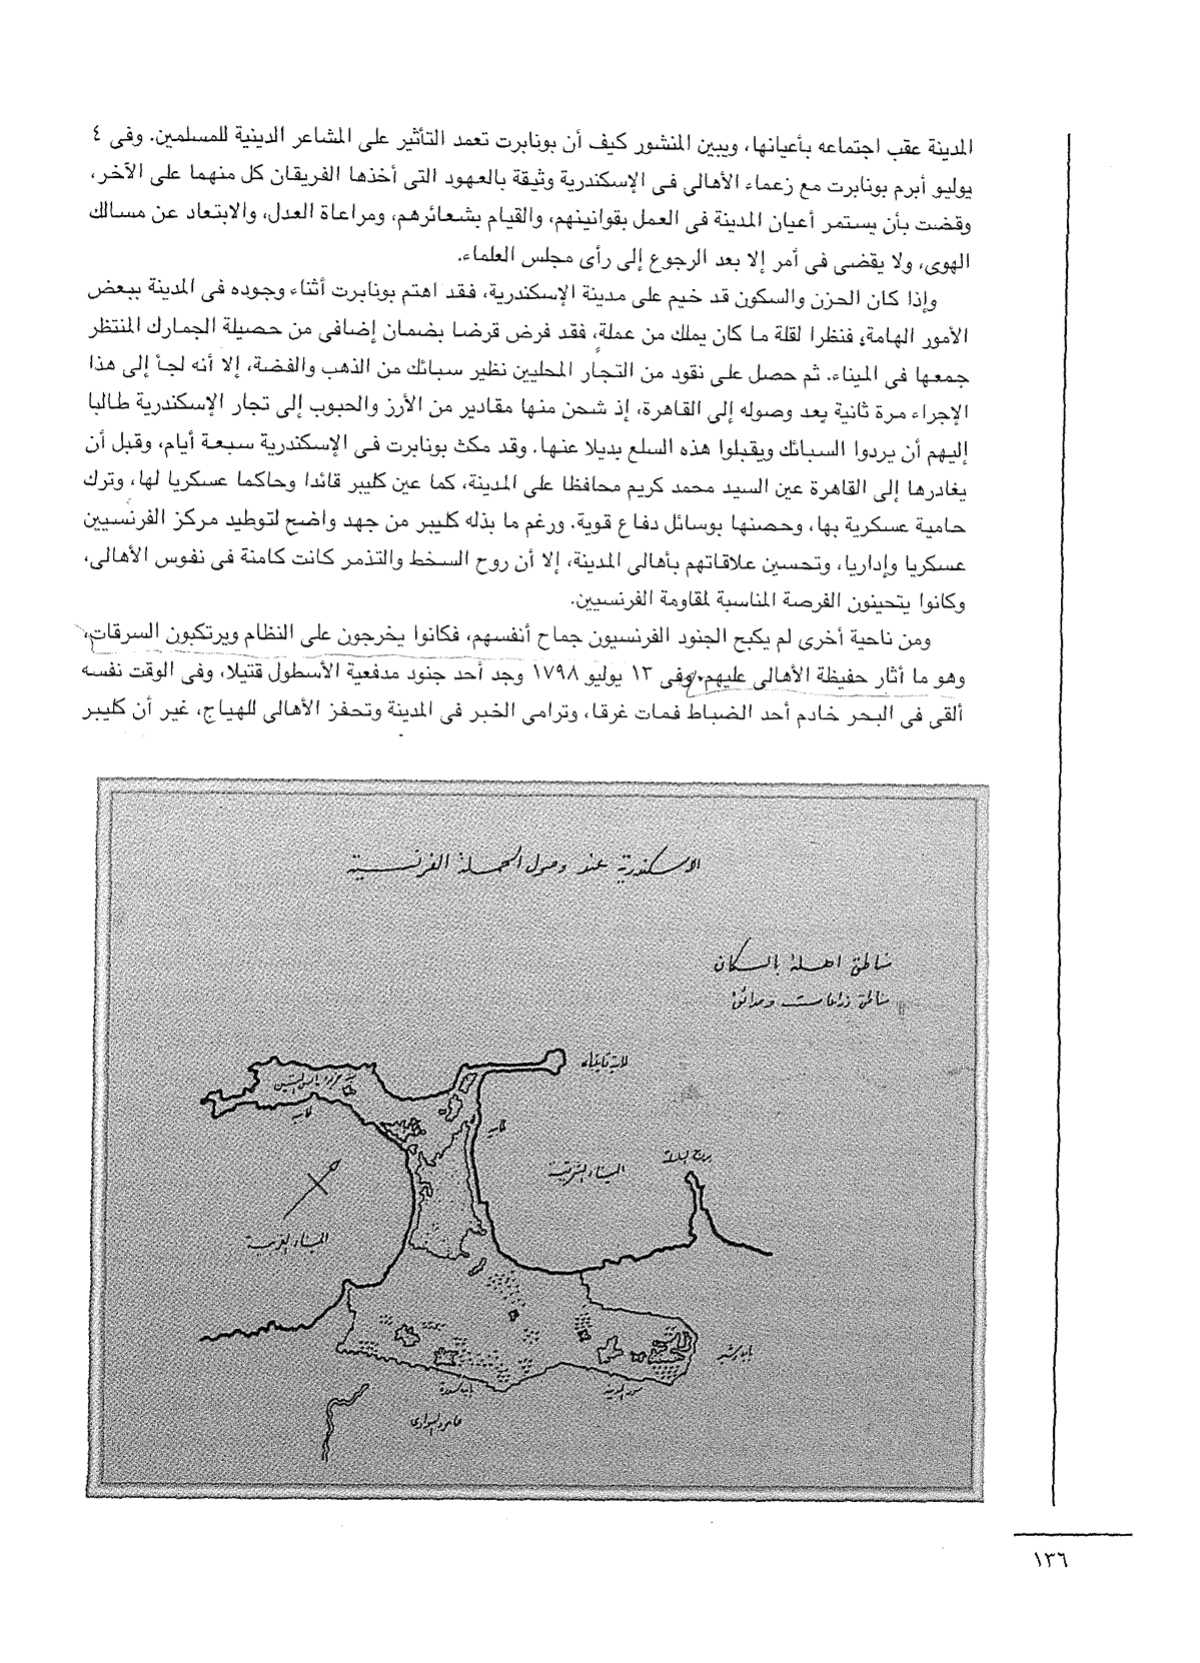 المدينة عقب اجتماعه بأعيانها، ويبين المنشور كيف أن بونابرت تعمد التأثير على المشاعر الدينية للمسلمين. وفى ٤
يوليو أبرم بونابرت مع زعماء الأهالى فى الإسكندرية وثيقة بالعهود التى أخذها الفريقان كل منهما على الآخر،
وقضت بأن يستمر أعيان المدينة فى العمل بقوانينهم، والقيام بشعائرهم، ومراعاة العدل، والابتعاد عن مسالك
الهوى، ولا يقضى فى أمر إلا بعد الرجوع إلى رأى مجلس العلماء.
وإذا كان الحزن والسكون قد خيم على مدينة الإسكندرية، فقد اهتم بونابرت أثناء وجوده فى المدينة ببعض
الأمور الهامة، فنظرا لقلة ما كان يملك من عملة، فقد فرض قرضا بضمان إضافى من حصيلة الجمارك المنتظر
جمعها فى الميناء. ثم حصل على نقود من التجار المحليين نظير سبائك من الذهب والفضة، إلا أنه لجأ إلى هذا
الإجراء مرة ثانية بعد وصوله إلى القاهرة، إذ شحن منها مقادير من الأرز والحبوب إلى تجار الإسكندرية طالبا
إليهم أن يردوا السبائك ويقبلوا هذه السلع بديلا عنها. وقد مكث بونابرت فى الإسكندرية سبعة أيام، وقبل أن
يغادرها إلى القاهرة عين السيد محمد كريم محافظا على المدينة، كما عين كليبر قائدا وحاكما عسكريا لها، وترك
حامية عسكرية بها، وحصنها بوسائل دفاع قوية. ورغم ما بذله كليبر من جهد واضح لتوطيد مركز الفرنسيين
عسكريا وإداريا، وتحسين علاقاتهم بأهالى المدينة، إلا أن روح السخط والتذمر كانت كامنة فى نفوس الأهالى،
وكانوا يتحينون الفرصة المناسبة لمقاومة الفرنسيين.
ومن ناحية أخرى لم يكبح الجنود الفرنسيون جماح أنفسهم، فكانوا يخرجون على النظام ويرتكبون السرقات،
وهو ما أثار حفيظة الأهالى عليهم. وفى ١٣ يوليو ١٧٩٨ وجد أحد جنود مدفعية الأسطول قتيلا، وفى الوقت نفسه
ألقى فى البحر خادم أحد الضباط فمات غرقا، وترامى الخبر فى المدينة وتحفز الأهالى للهياج، غير أن كليبر
الاسكندرية عند وصول الحملة الفرنسية
مناطق اهلة بالسكان
مناطق زراعات وحدائق
برج السلسلة
الميناء الشرقية
الميناء الغربية
باب رشيد
باب سدرة
عامود السوارى
١٣٦